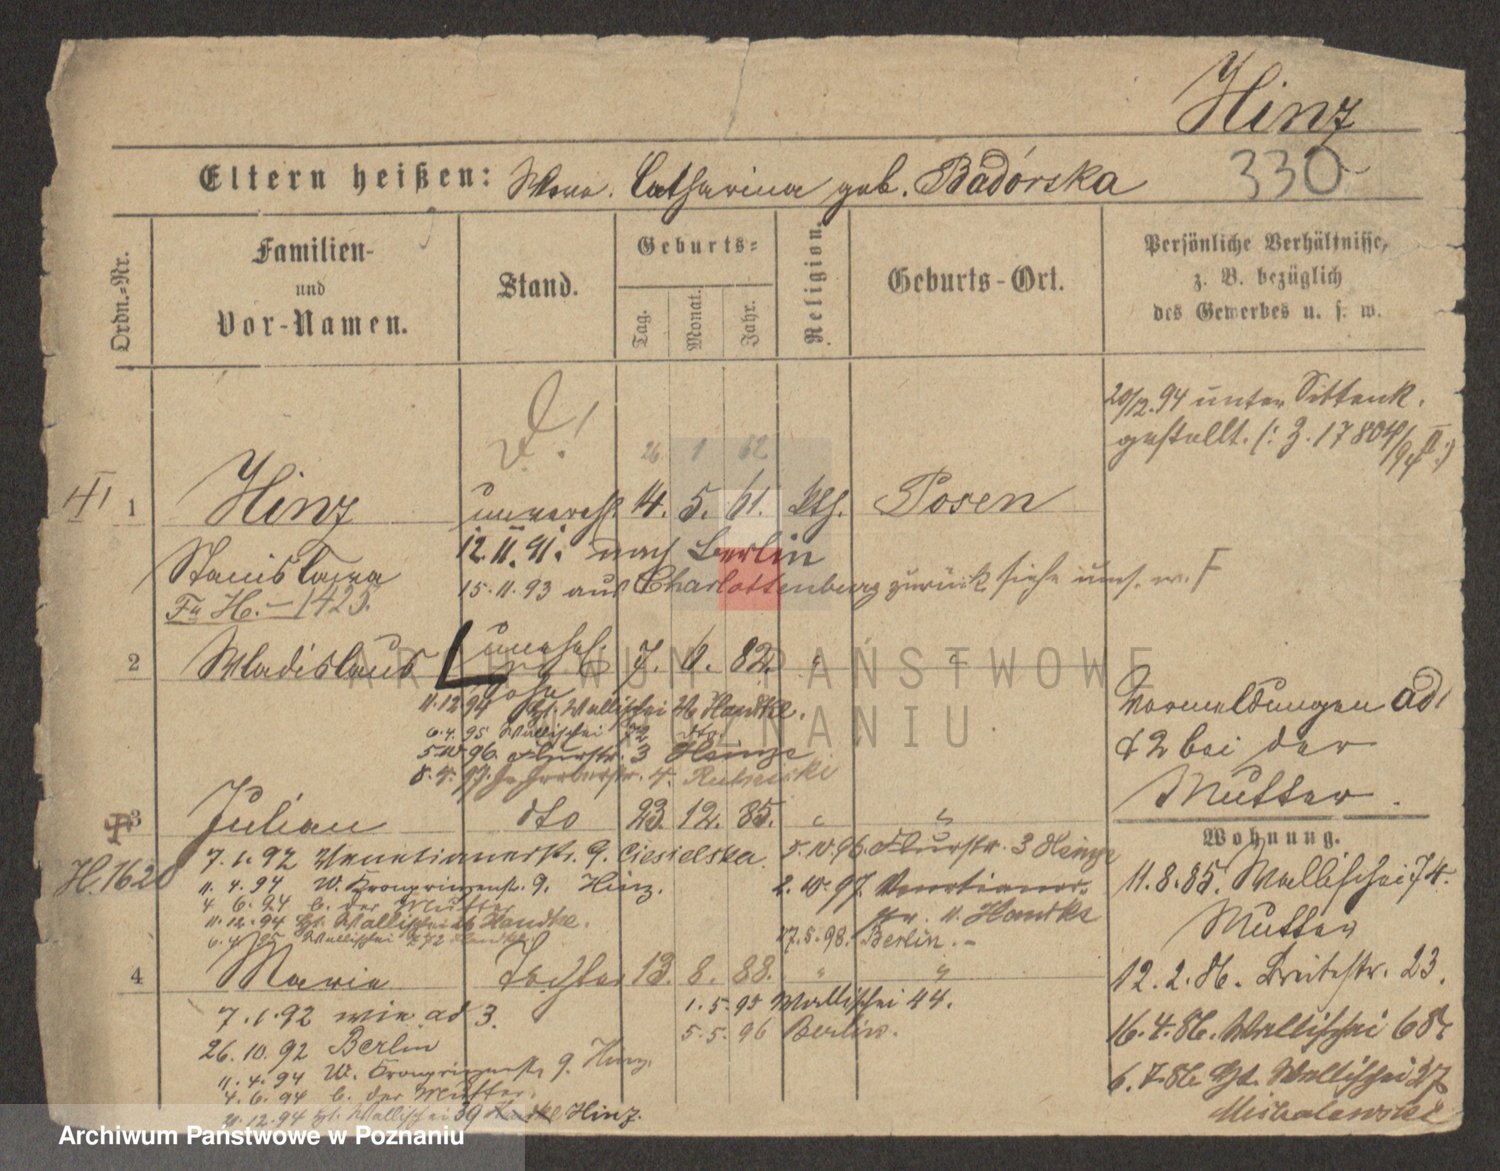 Hinz
330
Eltern heißen: Wwe. Catharina geb. Badórska
Ordn.-Nr.
Familien-
und
Vor-Namen.
Stand.
Geburts-
Tag.
Monat.
Jahr.
Religion.
Geburts-Ort.
Persönliche Verhältnisse,
z. B. bezüglich
des Gewerbes u. s. w.
20/12.94 unter Sittenk.
gestellt.
26 1 62
1 Hinz unvereh. 14. 5. 61. kth. Posen
12.11.91. nach Berlin
Stanislawa
15.11.93 aus Charlottenburg zurück siehe ums. w. F
H.-1423.
2 Wladislaus unehel. 7. 6. 82. "
Sohn
11.12.94 Wallischei Handke.
6.4.95 Wallischei 72 dto.
5.10.96. Flurstr. 3 Heinze
8.4.97. Gerberstr. 4.
Vormeldungen ad 1
& 2 bei der
Mutter.
3 Julian dto 23. 12. 85. " "
H.1620
7.1.92 Venetianerstr. 9. Ciesielska.
5.10.96. Flurstr. 3 Heinze
11.4.94 W. Kronprinzenstr. 9. Hinz.
2.10.97 Venetianer-
str. 11. Handke
4.6.94 b. der Mutter
11.12.94 Wallischei Handke.
6.4.95 Wallischei 72 Handke
27.5.98. Berlin.-
Wohnung.
11.8.85. Wallischei 74.
Mutter
12.2.86. Breitestr. 23.
16.4.86. Wallischei 68
6.7.86. Wallischei 27
Michalewski
4 Marie Tochter 13. 8. 88. " "
7.1.92 wie ad 3.
1.5.95 Wallischei 44.
26.10.92 Berlin
5.5.96 Berlin.
11.4.94 W. Kronprinzenstr. 9. Hinz.
4.6.94 b. der Mutter.
11.12.94 Wallischei 39 Hinz.
ARCHIWUM PAŃSTWOWE
W POZNANIU
Archiwum Państwowe w Poznaniu